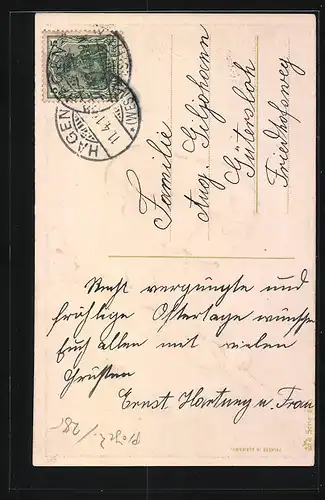 HAGEN
(WESTF)
11.4.1
Familie
Aug. Giljohann
Gütersloh
Friedhofsweg
Recht vergnügte und
fröhlige Ostertage wünschen
Euch allen mit vielen
Grüßen
Ernst Hartney u. Frau